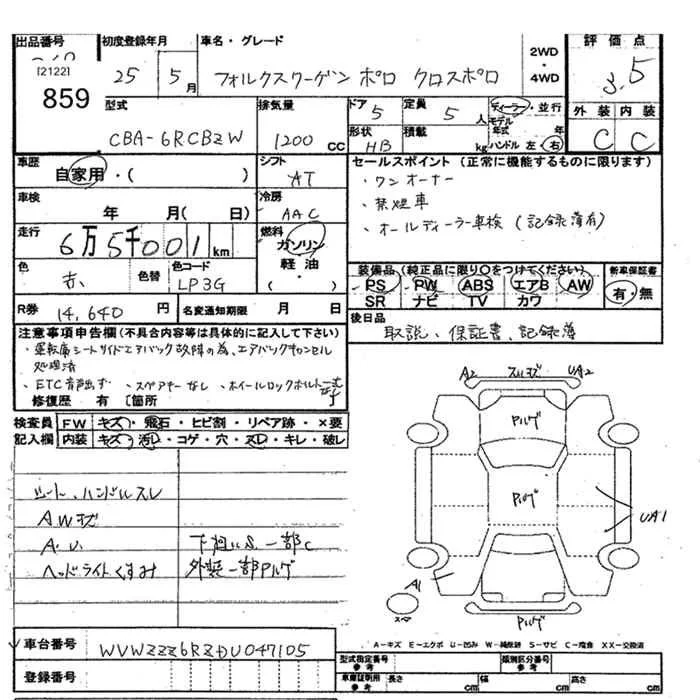 出品番号 初度登録年月 車名・グレード 2WD・4WD 評価点
[2122]
859
25 5月 フォルクスワーゲン ポロ クロスポロ 3.5
型式 排気量 ドア 5 定員 5人 ディーラー・並行 外装 内装
モデル年式 年
CBA-6RCBZW 1200 CC 形状 HB 積載 kg ハンドル 左・右 C C
車歴 自家用・( ) シフト AT セールスポイント(正常に機能するものに限ります)
・ワンオーナー
車検 年 月(日) 冷房 AAC ・禁煙車
・オールディーラー車検(記録簿有)
走行 6万5千001km 燃料 ガソリン・軽油・( )
色 赤 色替 色コード LP3G 装備品(純正品に限り○をつけてください) 新車保証書
PS PW ABS エアB AW 有・無
SR ナビ TV カワ
R券 14,640円 名変通知期限 月 日 後日品
取説、保証書、記録簿
注意事項申告欄(不具合内容等は具体的に記入して下さい)
・運転席シートサイドエアバック故障の為、エアバックキャンセル
処理済
・ETC音声出ず ・スペアキーなし ・ホイールロックボルト一式
修復歴 有 [箇所
検査員記入欄 FW キズ・飛石・ヒビ割・リペア跡・×要
内装 キズ・汚レ・コゲ・穴・スレ・キレ・破レ
シート、ハンドルスレ
AWキズ
A.U. 下廻りS.一部C
ヘッドライトくすみ 外装一部Pハゲ
A2 スリキズ UA2
Pハゲ
Pハゲ
UA1
A1
スペア
Pハゲ
A-キズ E-エクボ U-凹み W-補修跡 S-サビ C-腐食 XX-交換済
車台番号 WVWZZZ6RZDU047105
型式指定番号 参考 類別区分番号 参考
登録番号 車庫証明用 参考 長さ cm 幅 cm 高さ cm